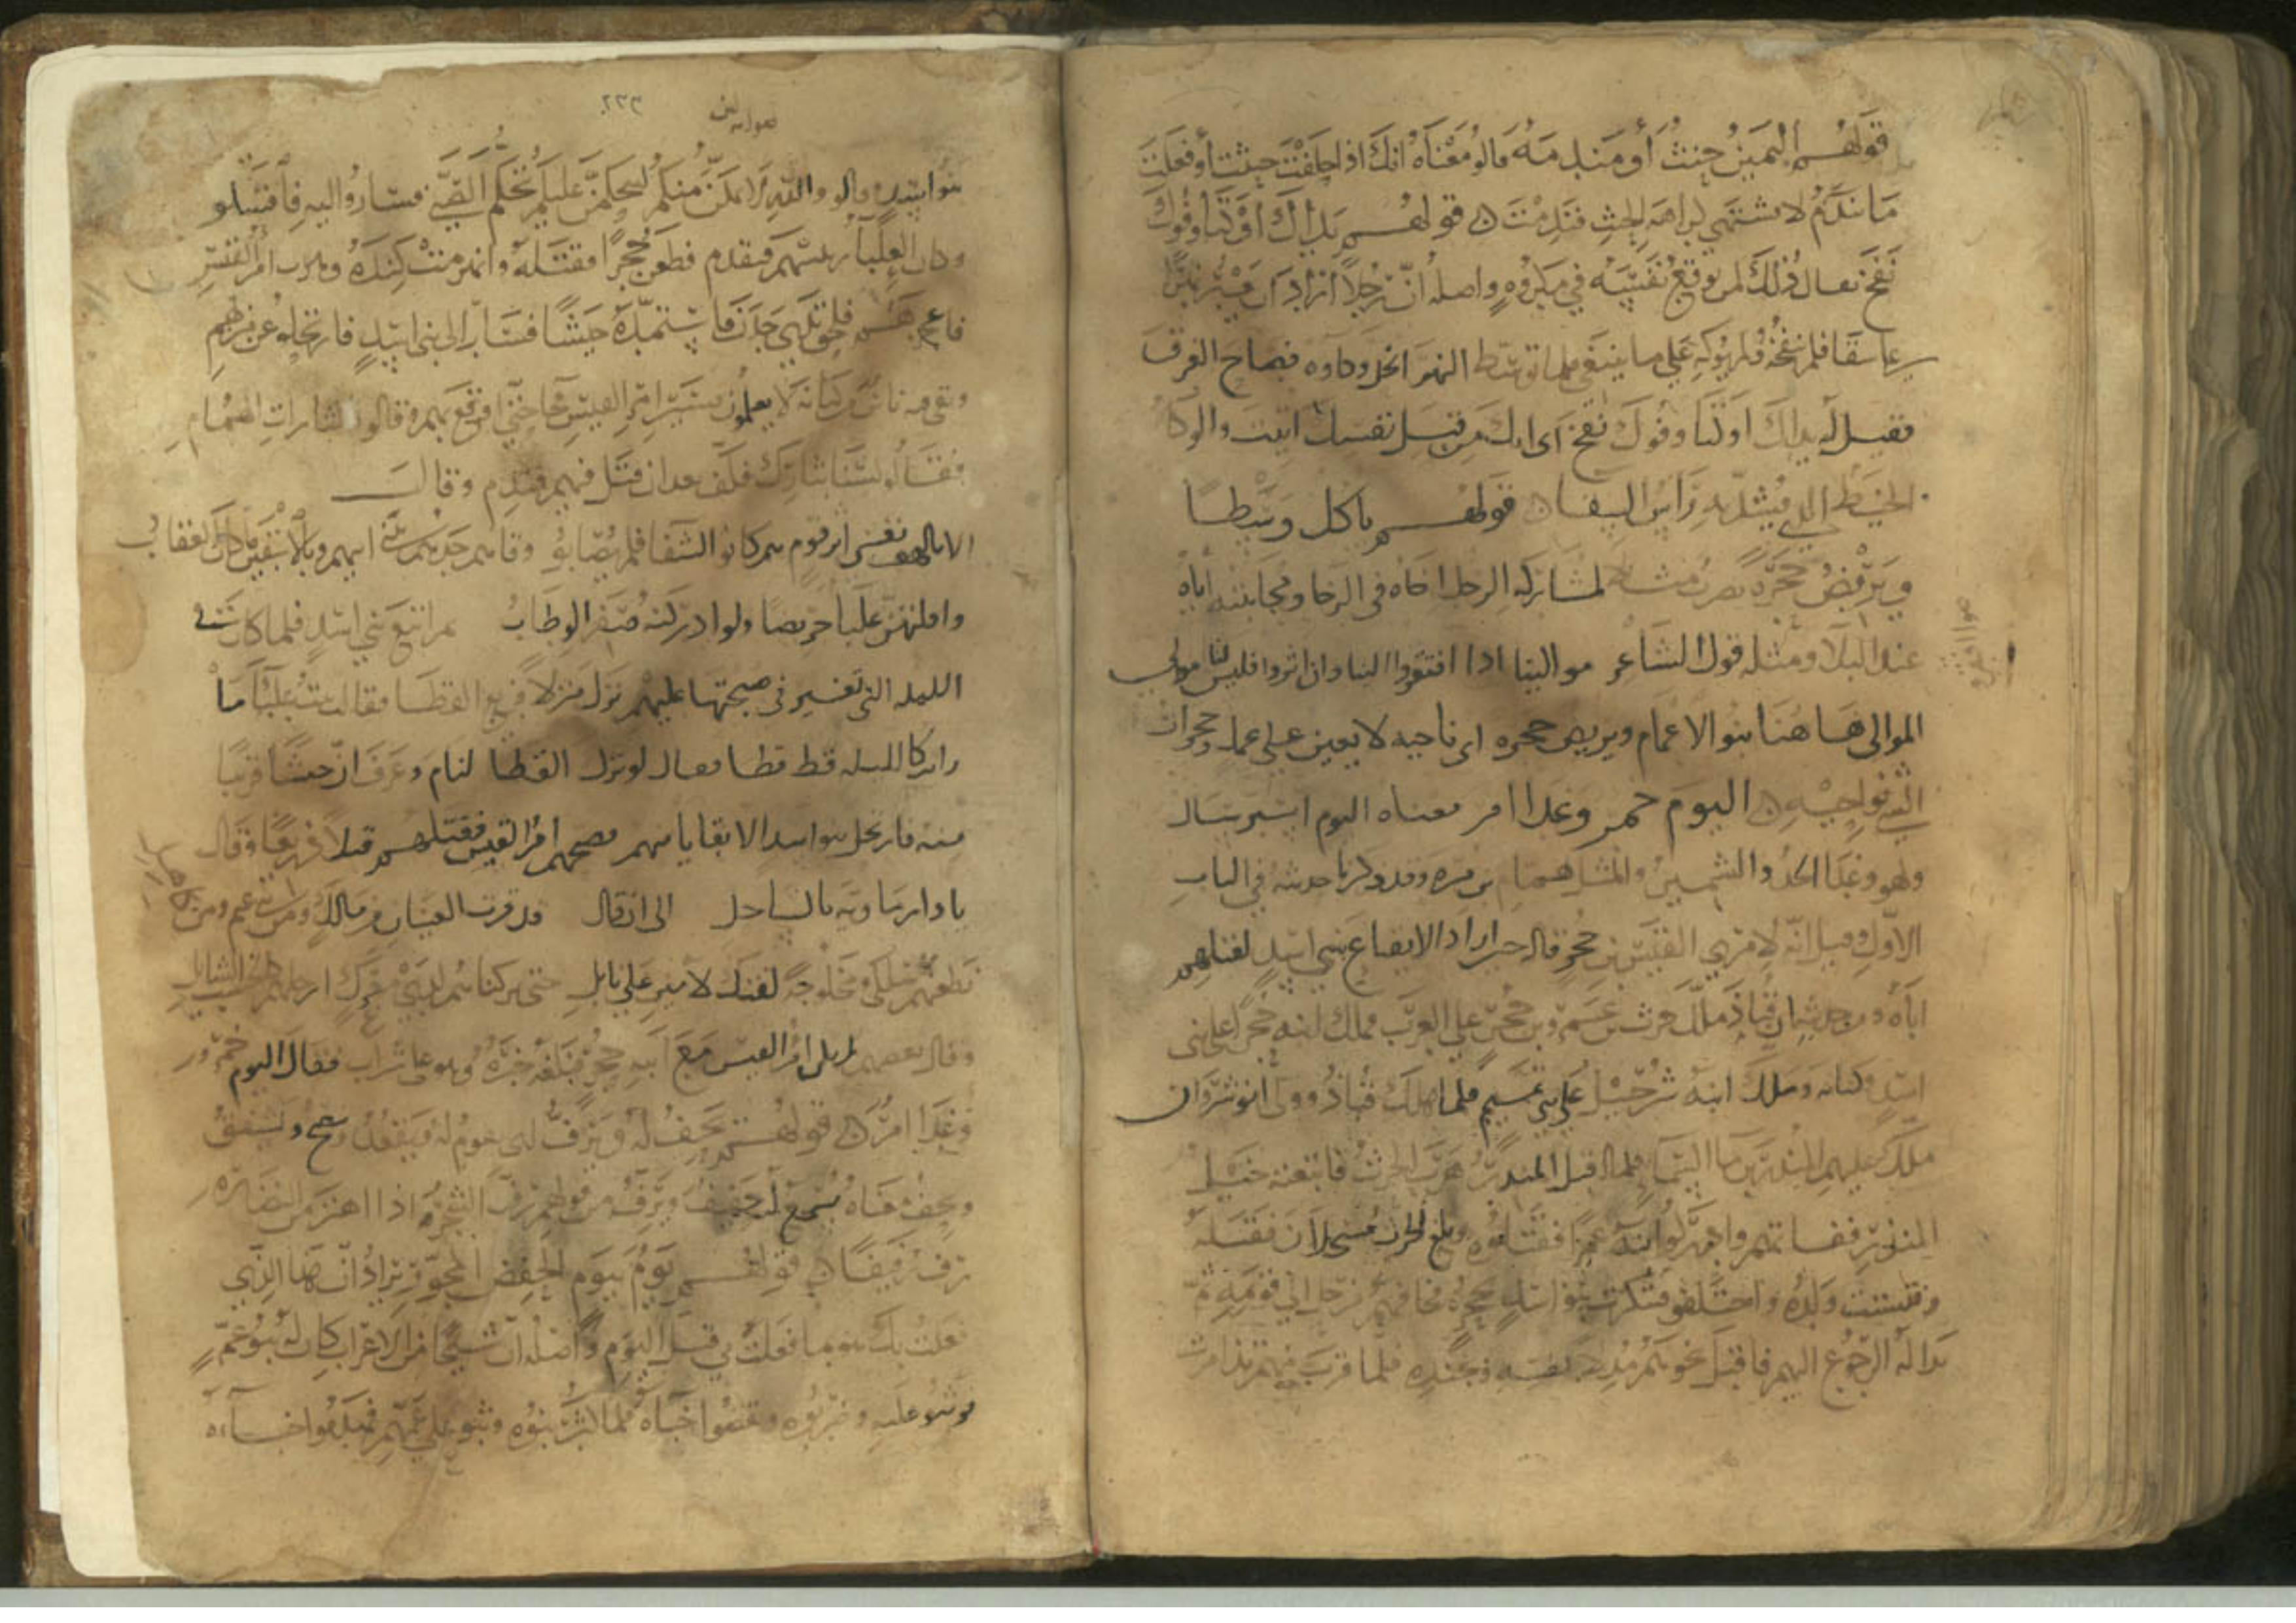 قولهم اليمين حنث أو مندمه قالو معناه انك اذا حلفت حنثت أو فعلت
ما تندم لا تشتهي كراهة الحنث فندمت قولهم يداك أوكتا وفوك
نفخ يقال ذلك لمن يوقع نفسه في مكروه واصله أن رجلا اراد أن يعبر نهرا
على سقا فلم ينفخه ولم يوكه على ما ينبغي فلما توسط النهر انحل وكاوه فصاح الغرق
فقيل له يداك اوكتا وفوك نفخ اى انك من قبل نفسك اتيت والوكا
الخيط الذي يشد به رأس السقا قولهم ياكل وسطا
ويربض حجره يضرب مثلا لمشاركه الرجل اخاه في الرخا ومجانبته اياه
عند البلا ومثله قول الشاعر موالينا اذا افتقروا الينا وان اثروا فليس لنا موالي
الموالى هاهنا بنو الاعمام ويربض حجره اى ناحيه لا يعين على عمل وحجرات
الشي نواحيه اليوم خمر وغدا امر معناه اليوم
ولهو وغدا الجد والتشمير والمثل لهمام بن مره وقد ذكرنا حديثه في الباب
الاول وقيل انه لامري القيس بن حجر قاله حين اراد الايقاع ببني اسد لقتلهم
اباه ومن حديثه ان قباذ ملك حرث بن عمرو بن حجر على العرب فملك ابنه حجرا على بني
اسد وكنانه وملك ابنه شرحبيل على بني تميم فلما هلك قباذ وولى انوشروان
ملك عليهم المنذر بن ما السما فلما اقبل المنذر هرب الحرث فاتبعته خيل
المنذر ففاتهم وادركوا ابنه عمرا فقتلوه وبلغ الحرث مسحلان فقتله
وتشتت ولده واختلفو فتنكرت بنو اسد لحجر فخافهم فرحل الى قومه ثم
بدا له الرجوع اليهم فاقبل نحوهم مدلا بنفسه وجنده فلما قرب منهم تذامرت
٢٣٣
بنو اسد وقالو والله لان تمكن منكم ليحكمن عليكم تحكم الصبي فساروا اليه فاقتتلو
وكان العلبا رئيسهم فتقدم فطعن حجرا فقتله وانهزمت كنده وهرب امرؤ القيس
فاعجزهم فلحق جدن فاستمده جيشا فسار الى بني اسد فارتحلوا عن منزلهم
وبقي فيه ناس من كنانه لا يعلمون بمسير امرئ القيس حتى اوقع بهم وقالو يا لثارات الهمام
فقالو لسنا بثارك فكف بعد ان قتل فيهم فندم وقال
الا يالهف نفسي اثر قوم هم كانو الشفا فلم يصابو وقاهم جدهم ببني ابيهم وبالاشقين ما كان العقاب
وافلتهن علبا جريضا ولو ادركنه صفر الوطاب ثم اتبع بني اسد فلما كان في
الليله التي تفسير في صبحتها عليهم نزل منزلا فريع القطا فقالت بنت علبا ما
رايت كالليله قط قطا فقال لو ترك القطا لنام وعرف ان جيشا قريبا
منه فارتحل بنو اسد الا بقايا منهم فصبحهم امرؤ القيس فقتلهم قتلا ذريعا وقال
يا دار ماويه بالساحل الى ان قال قد قرت العينان من مالك ومن بني عمرو ومن كاهل
نطعنهم سلكى ومخلوجة لفتك لامين على نابل حتى تركناهم لدى معرك ارجلهم كالخشب الشايل
وقال بعضهم لم يكن امرؤ القيس مع ابيه حجر فبلغه خبره وهو على شراب فقال اليوم خمر
وغدا امر قولهم يحف له ويرف لمن يقوم له فيقعد وينصح ويشفق
ويحف معناه يسمع له حفيف ويرف من قولهم رف الشجر اذا اهتز من النضاره
يرف رفيفا قولهم يوم بيوم الحفض المجور يراد ان هذا الذي
فعلت بك هو بما فعلت بي قبل اليوم واصله ان شيخا من الاعراب كان له بنو عم
فوثبو عليه وضربوه وهتكوا خباه فلما كبر بنوه وثبو على عمهم فهتكوا خباءه